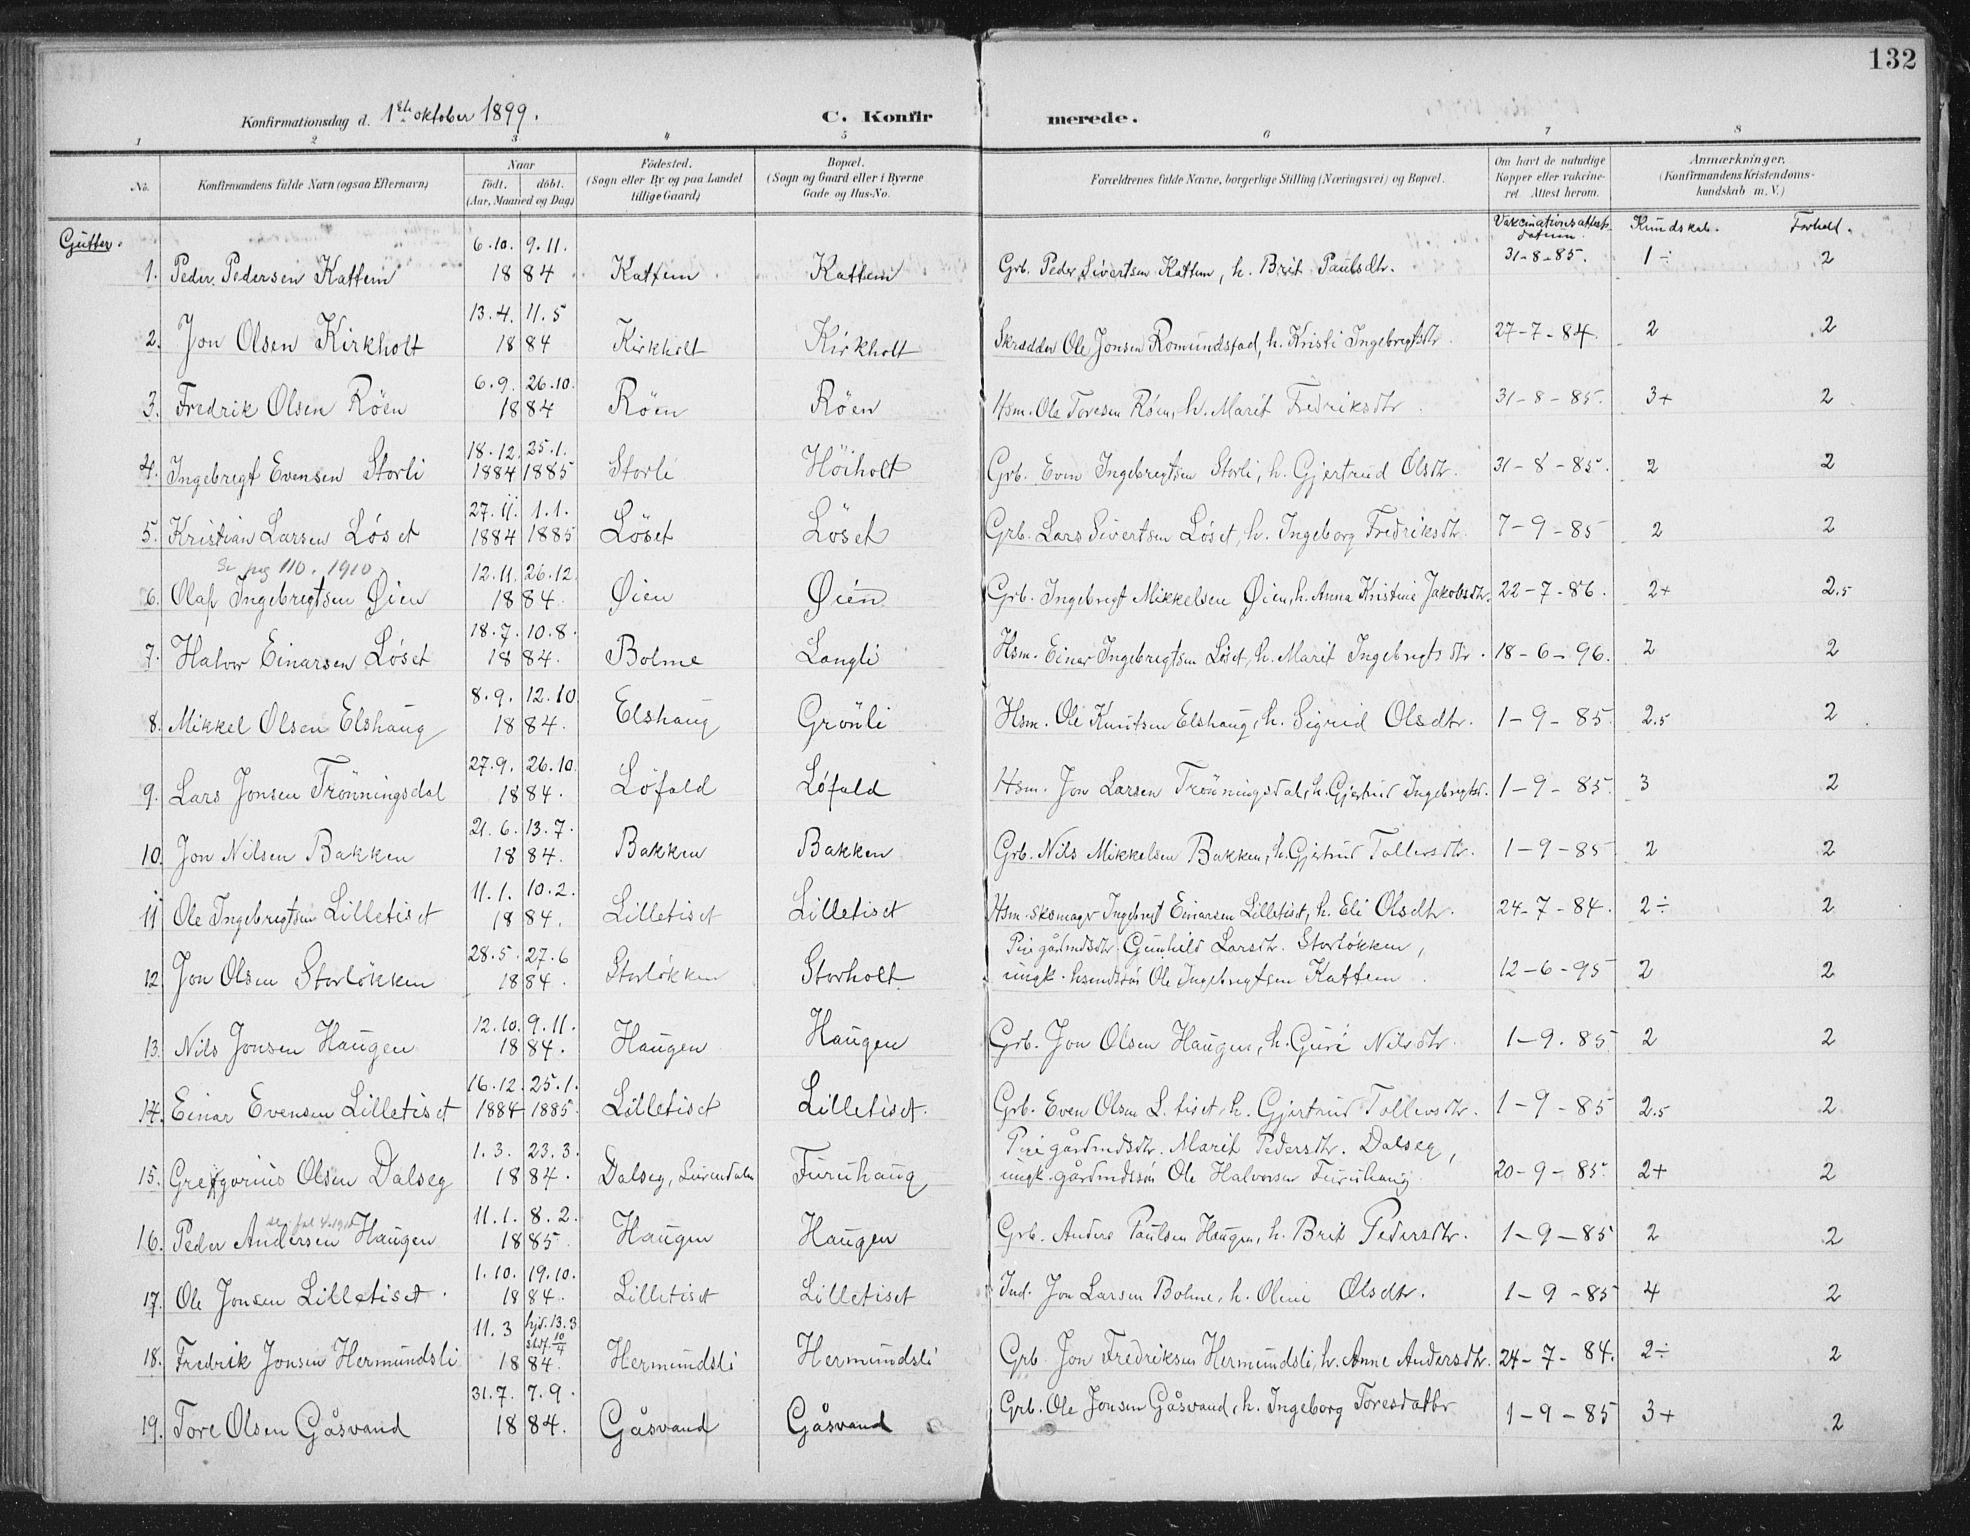 132
Konfirmationsdag d. 1ste oktober 1899. C. Konfirmerede.
1 2 3 4 5 6 7 8
No. Konfirmandens fulde Navn (ogsaa Efternavn) Naar födt. döbt. (Aar, Maaned og Dag) Födested. (Sogn eller By og paa Landet tillige Gaard) Bopæl. (Sogn og Gaard eller i Byerne Gade og Hus-No. Forældrenes fulde Navne, borgerlige Stilling (Næringsvei) og Bopæl. Om havt de naturlige Kopper eller vakcineret. Attest herom. Anmærkninger. (Konfirmandens Kristendomskundskab m. V.)
Gutter. Vakcinationsattests datum. Kundskab. Forhold.
1. Peder Pedersen Kattem 6.10. 9.11. 1884 Kattem Kattem Grb. Peder Sivertsen Kattem, h. Brit Paulsdtr. 31-8-85. 1÷ 2
2. Jon Olsen Kirkholt 13.4. 11.5 1884 Kirkholt Kirkholt Skrædder Ole Jonsen Romundstad, h. Kristi Ingebrigtsdtr. 27-7-84. 2 2
3. Fredrik Olsen Röen 6.9. 26.10. 1884 Röen Röen Hsm. Ole Toresen Röen, h. Marit Fredriksdtr. 31-8-85. 3+ 2
4. Ingebrigt Evensen Storli 18.12. 25.1. 1884 1885 Storli Höiholt Grb. Even Ingebrigtsen Storli, h. Gjertrud Olsdtr. 31-8-85. 2 2
5. Kristian Larsen Löset 27.11. 1.1. 1884 1885 Löset Löset Grb. Lars Sivertsen Löset, h. Ingeborg Fredriksdtr. 7-9-85 2 2
Se pag 110. 1910
6. Olaf Ingebrigtsen Øien 12.11. 26.12. 1884. Øien Øien Grb. Ingebrigt Mikkelsen Øien, h. Anna Kristine Jakobsdtr. 22-7-86. 2+ 2.5
7. Halvor Einarsen Löset 18.7. 10.8. 1884. Bolme Langli Hsm. Einar Ingebrigtsen Löset, h. Marit Ingebrigtsdtr. 18-6-96. 2 2
8. Mikkel Olsen Elshaug 8.9. 12.10. 1884. Elshaug Grönli Hsm. Ole Knutsen Elshaug, h. Sigrid Olsdtr. 1-9-85. 2.5 2
9. Lars Jonsen Trönningsdal 27.9. 26.10. 1884. Löfald Löfald Hsm. Jon Larsen Trönningsdal, h. Gjertrud Ingebrigtsd. 1-9-85. 3 2
10. Jon Nilsen Bakken 21.6. 13.7. 1884. Bakken Bakken Grb. Nils Mikkelsen Bakken, h. Gjertrud Tollevsdtr. 1-9-85 2 2
11 Ole Ingebrigtsen Lilletiset 11.1. 10.2. 1884. Lilletiset Lilletiset Hsm. skomager Ingebrigt Einarsen Lilletiset, h. Eli Olsdtr. 24-7-84. 2÷ 2
Pige gårdmdsdtr. Gunhild Larsdtr. Storlökken,
12. Jon Olsen Storlökken 28.5. 27.6 1884. Storlökken Storholt ungk. hsmdssön Ole Ingebrigtsen Kattem. 12-6-95 2 2
13. Nils Jonsen Haugen 12.10. 9.11. 1884. Haugen Haugen Grb. Jon Olsen Haugen, h. Guri Nilsdtr. 1-9.85. 2 2
14. Einar Evensen Lilletiset 16.12. 25.1. 1884 1885. Lilletiset Lilletiset. Grb. Even Olsen L.tiset, h. Gjertrud Tollevsdtr. 1-9-85 2.5 2
Pige gårdmdsdtr. Marit Pedersdtr. Dalseg,
15. Gregorius Olsen Dalseg 1.3. 23.3. 1884. Dalseg, Surendalen Furuhaug ungk. gårdmdssön Ole Halvorsen Furuhaug. 20-9-85. 2+ 2
16. Peder Andersen Haugen 11.1. 8.2. 1885. Haugen Haugen Grb. Anders Paulsen Haugen, h. Brit Pedersdtr. 1-9-85 2 2
17. Ole Jonsen Lilletiset. 1.10. 19.10. 1884. Lilletiset Lilletiset Ind. Jon Larsen Bolme, h. Oline Olsdtr. 1-9-85 4 2
18. Fredrik Jonsen Hermundsli 11.3 hjd. 13.3 stdf. 10/4 1884. Hermundsli Hermundsli Grb. Jon Fredriksen Hermundsli, h. Anne Andersdtr. 24-7-84. 2÷ 2
19. Tore Olsen Gåsvand 31.7. 7.9. 1884. Gåsvand Gåsvand Grb. Ole Jonsen Gåsvand, h. Ingeborg Toresdatter 1-9-85 3+ 2